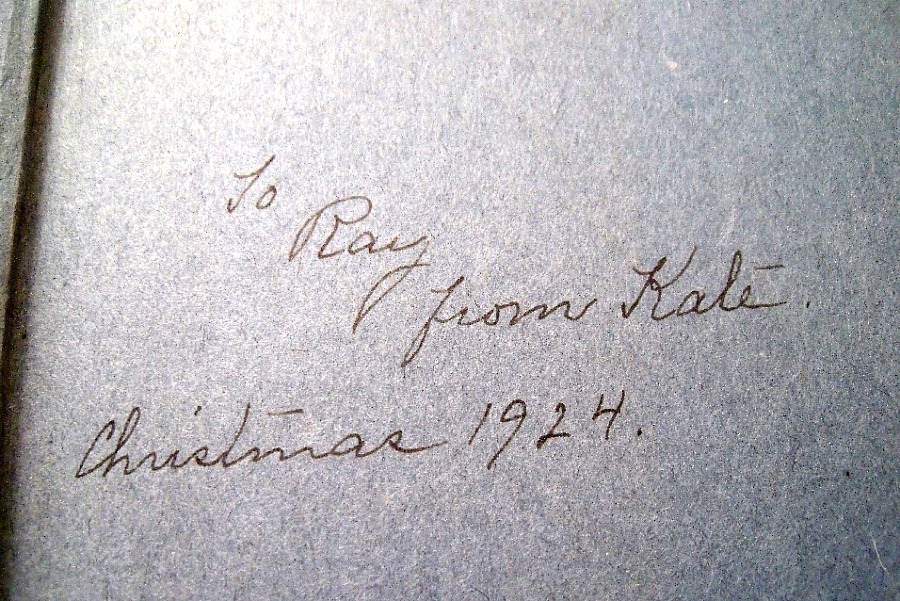 To
Ray
from Kate.
Christmas 1924.